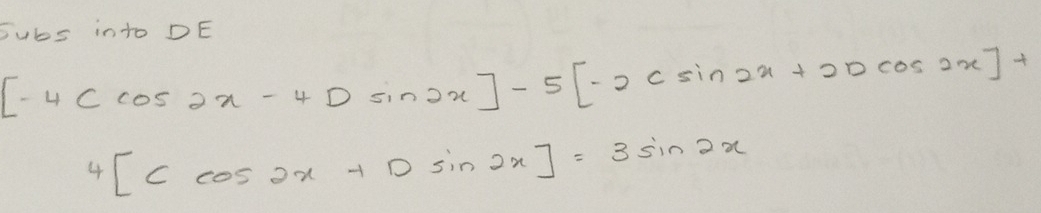 Subs into DE
[-4C cos 2x - 4D sin 2x] - 5[-2C sin 2x + 2D cos 2x] +
4[C cos 2x + D sin 2x] = 3 sin 2x